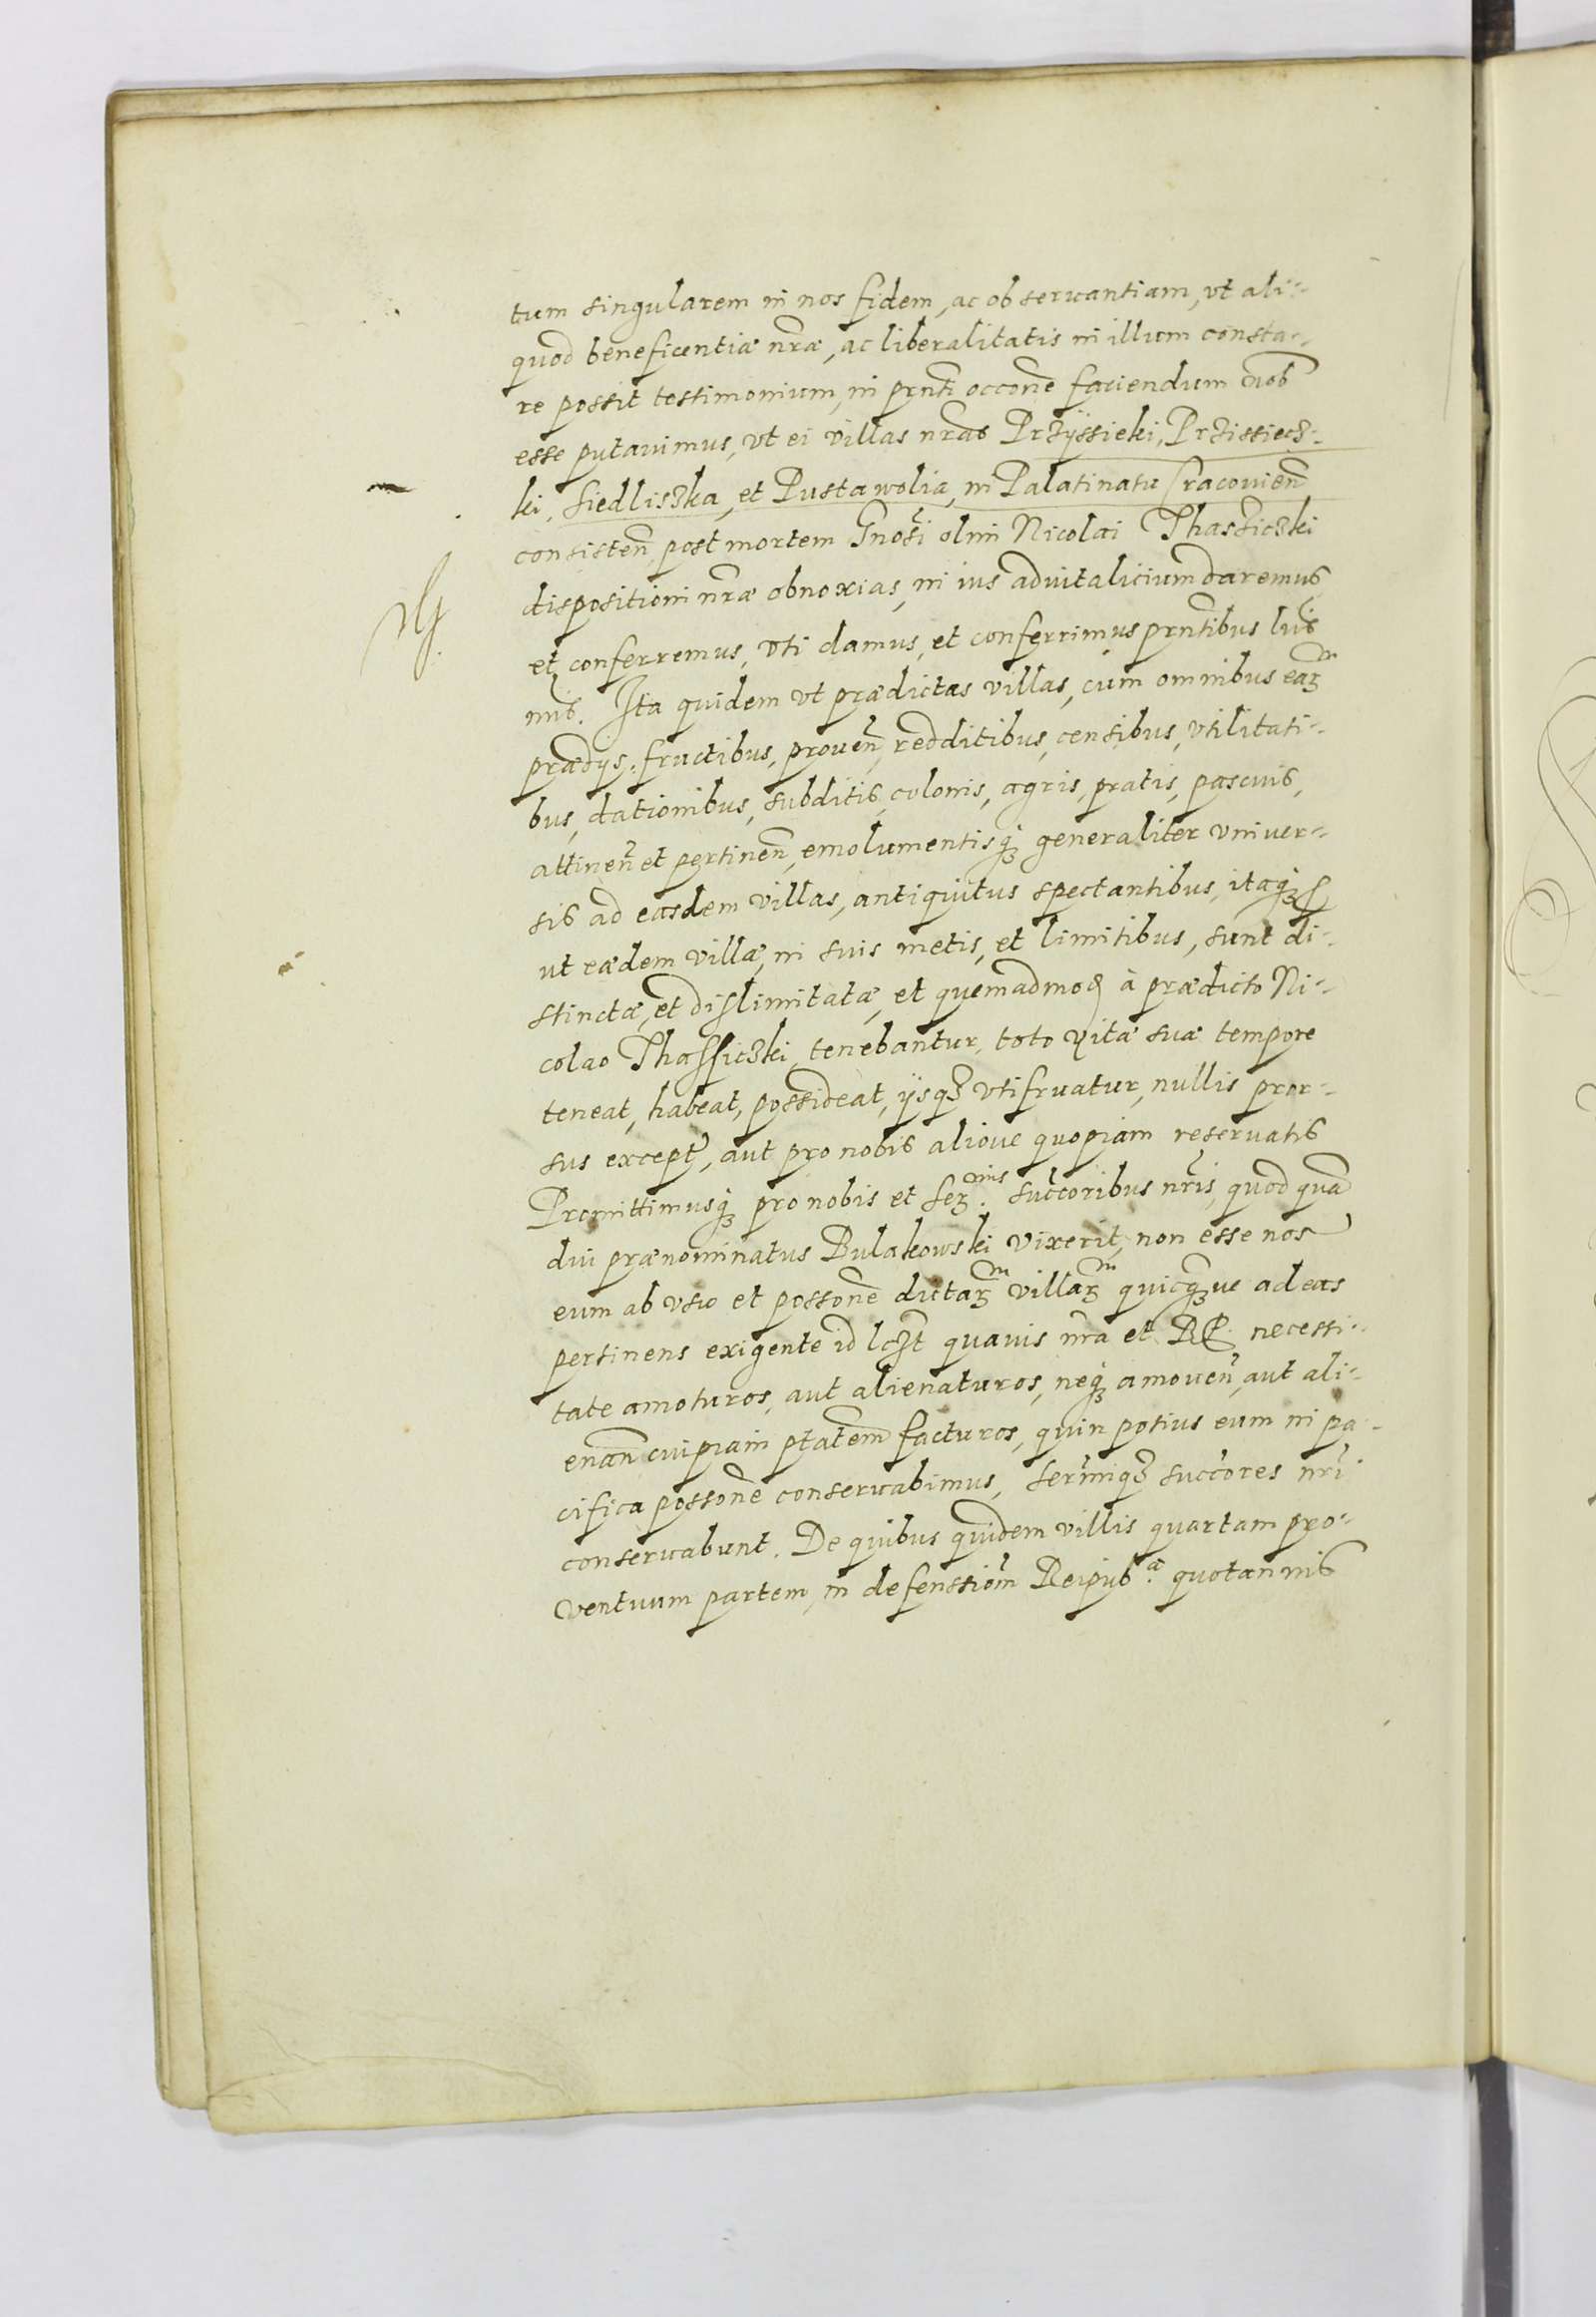 tum singularem in nos fidem, ac observantiam, vt ali-
quod beneficentiæ nræ, ac liberalitatis in illum consta-
re possit testimonium, in prnti occone faciendum nob
esse putavimus, vt ei villas nras Przÿssieki, Przissiecz-
ki, Siedliszka, et Pustawolia, in Palatinatu Cracovien
consisten post mortem Gnosi olim Nicolai Thassiczki
dispositioni nræ obnoxias, in ius advitalicium daremus
et conferremus, vti damus, et conferrimus prntibus lris
nris. Ita quidem vt prædictas villas, cum omnibus earum
prædijs, fructibus, proven, redditibus, censibus, vtilitati-
bus, dationibus, subditis, colonis, agris, pratis, pascuis,
attinen et pertinen, emolumentisq generaliter vniver-
sis ad easdem villas, antiquitus spectantibus, itaq
ut eædem villæ, in suis metis, et limitibus, sunt di-
stinctæ, et dislimitatæ, et quemadmod à prædicto Ni-
colao Thassiczki tenebantur, toto vitæ suæ tempore
teneat, habeat, possideat, ijsq vtifruatur, nullis pror-
sus except, aut pro nobis aliove quopiam reservatis
Promittimusq pro nobis et Ser.mis succoribus nris, quod quam
diu prænominatus Bulakowski vixerit, non esse nos
eum ab vsu et possone dictarum villarum quicqve ad eas
pertinens exigente id lczt quavis nra et RP. necessi-
tate amoturos, aut alienaturos, neq amoven, aut ali-
enan cuipiam ptatem facturos, quin potius eum in pa-
cifica possone conservabimus, sermiq succores nri
conservabunt. De quibus quidem villis quartam pro-
ventuum partem, in defenssiom Reipub.æ quotannis